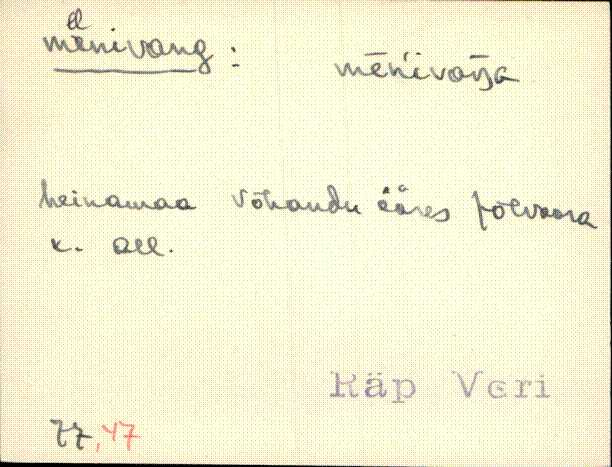 el
mēnivang : mēńivaŋa
heinamaa Võhandu ääres Põlvaora
k. all.
Räp Veri
77,47